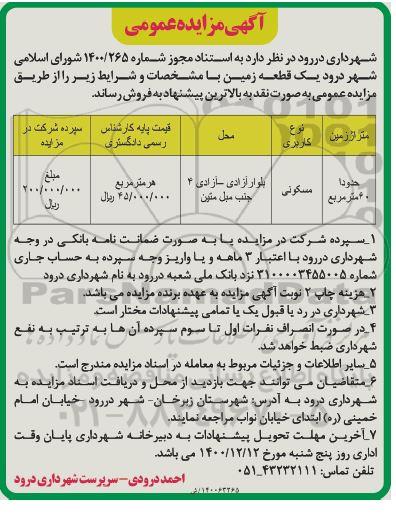 آگهی مزایده عمومی
شهرداری درود در نظر دارد به استناد مجوز شماره ۱۴۰۰/۲۶۵ شورای اسلامی
شهر درود یک قطعه زمین با مشخصات و شرایط زیر را از طریق
مزایده عمومی به صورت نقد به بالاترین پیشنهاد به فروش رساند.
متراژ زمین	نوع کاربری	محل	قیمت پایه کارشناس رسمی دادگستری	سپرده شرکت در مزایده
حدودا ۶۰مترمربع	مسکونی	بلوار آزادی –آزادی ۴ جنب مبل متین	هرمترمربع ۴۵/۰۰۰/۰۰۰ ریال	مبلغ ۲۰۰/۰۰۰/۰۰۰ ریال
۱_سپرده شرکت در مزایده یا به صورت ضمانت نامه بانکی در وجه
شهرداری درود با اعتبار ۳ ماهه و یا واریز وجه سپرده به حساب جاری
شماره ۳۱۰۰۰۰۳۴۵۵۰۰۵ نزد بانک ملی شعبه درود به نام شهرداری درود
۲_هزینه چاپ ۲ نوبت آگهی مزایده به عهده برنده مزایده می باشد.
۳_شهرداری در رد یا قبول یک یا تمامی پیشنهادات مختار است.
۴_در صورت انصراف نفرات اول تا سوم سپرده آن ها به ترتیب به نفع
شهرداری ضبط خواهد شد.
۵_سایر اطلاعات و جزئیات مربوط به معامله در اسناد مزایده مندرج است.
۶_متقاضیان می توانند جهت بازدید از محل و دریافت اسناد مزایده به
شهرداری درود به آدرس: شهرستان زبرخان- شهر درود _خیابان امام
خمینی (ره) ابتدای خیابان نواب مراجعه نمایند.
۷_آخرین مهلت تحویل پیشنهادات به دبیرخانه شهرداری پایان وقت
اداری روز پنج شنبه مورخ ۱۴۰۰/۱۲/۱۲ می باشد.
تلفن تماس: ۴۳۲۳۲۱۱۱_۰۵۱
احمد درودی – سرپرست شهرداری درود
۱۴۰۰۶۳۲۶۵/ش